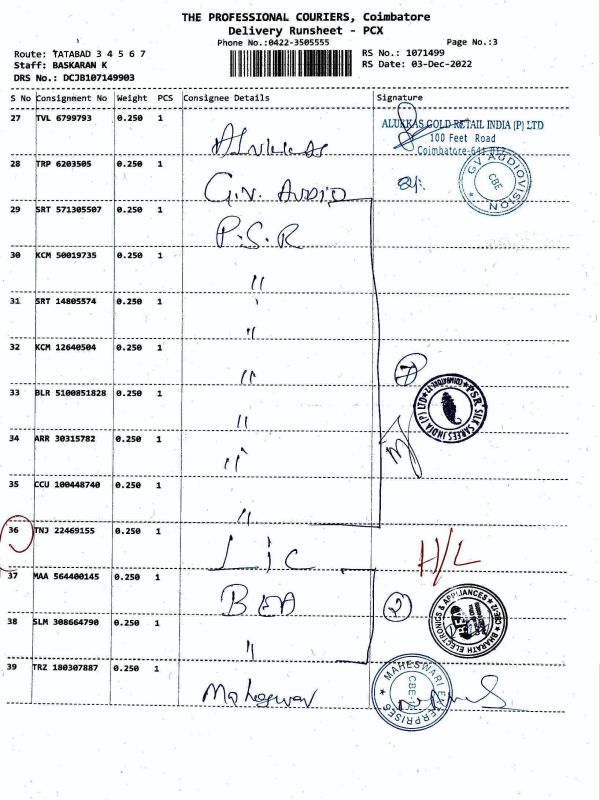 THE PROFESSIONAL COURIERS, Coimbatore
Delivery Runsheet - PCX
Phone No.:0422-3505555 Page No.:3
Route: TATABAD 3 4 5 6 7 RS No.: 1071499
Staff: BASKARAN K RS Date: 03-Dec-2022
DRS No.: DCJB107149903
S No Consignment No Weight PCS Consignee Details Signature
27 TVL 6799793 0.250 1 ALUKKAS
ALUKKAS GOLD RETAIL INDIA (P) LTD
100 Feet Road
Coimbatore-641 012
28 TRP 6203505 0.250 1 G.V. AUDIO
GV AUDIOVISION CBE
29 SRT 571305507 0.250 1 P.S.R
30 KCM 50019735 0.250 1 "
31 SRT 14805574 0.250 1 "
32 KCM 12640504 0.250 1 " 7
33 BLR 5100851828 0.250 1 "
PSR SILK SAREES INDIA (P) LTD COIMBATORE-12
34 ARR 30315782 0.250 1 "
35 CCU 100448740 0.250 1 "
36 TNJ 22469155 0.250 1 LIC H/L
37 MAA 564400145 0.250 1 BEA 2
BHARATH ELECTRONICS & APPLIANCES CBE-12
38 SLM 308664790 0.250 1 "
39 TRZ 180307887 0.250 1 Maheswar
MAHESWARI ENTERPRISES CBE